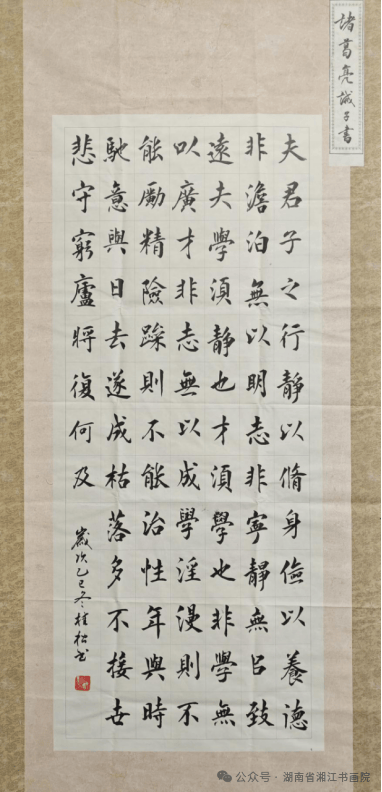 諸葛亮誡子書
夫君子之行靜以脩身儉以養德
非澹泊無以明志非寧靜無㠯致
遠夫學須靜也才須學也非學無
以廣才非志無以成學淫漫則不
能勵精險躁則不能治性年與時
馳意與日去遂成枯落多不接世
悲守窮廬將復何及
歲次乙巳冬桂松书
公众号·湖南省湘江书画院